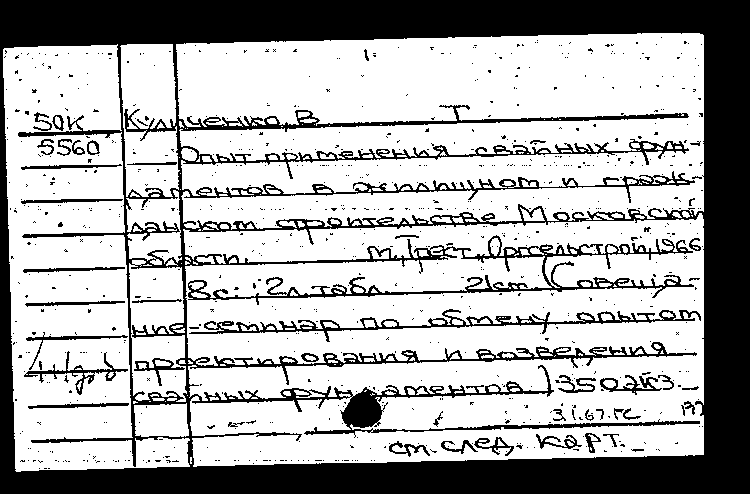 50К Куличенко, В Т
5560 Опыт применения свайных фун-
даментов в жилищном и граж-
данском строительстве Московской
области. М., Трест „Оргсельстрой", 1966
8с.; 2л.табл. 21см (Совеща-
ние-семинар по обмену опытом
проектирования и возведения
свайных фундаментов) 350экз
3.1.67.ГС
см. след. карт.